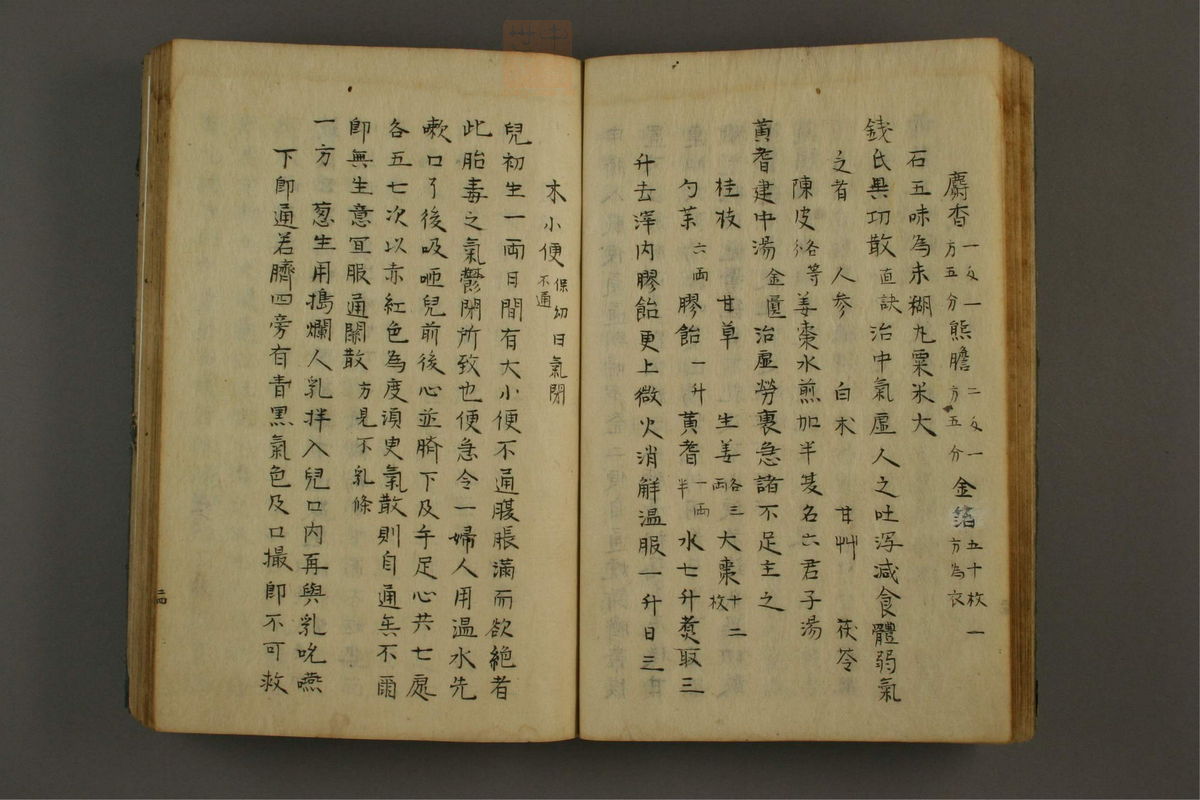 麝香一戈一方五分熊膽二戈一方五分金箔五十枚一方為衣
石五味為末糊丸粟米大
錢氏異功散直訣治中氣虛人之吐瀉減食體弱氣
之者 人參 白朮 甘艸 茯苓
陳皮各等分姜棗水煎加半夏名六君子湯
黃耆建中湯金匱治虛勞裏急諸不足主之
桂枝 甘草 生姜各三兩大棗十二枚
勺薬六兩膠飴一升黃耆一兩半水七升煑取三
升去滓内膠飴更上微火消解温服一升日三
木小便不通保幼曰氣閉
兒初生一兩日間有大小便不通腹脹滿而欲絶者
此胎毒之氣鬱閉所致也便急令一婦人用温水先
嗽口了後吸咂兒前後心並臍下及手足心共七處
各五七次以赤紅色為度須臾氣散則自通矣不爾
卽無生意宜服通關散方見不乳條
一方葱生用搗爛人乳拌入兒口内再與乳吮嚥
下卽通若臍四旁有青黑氣色及口撮卽不可救